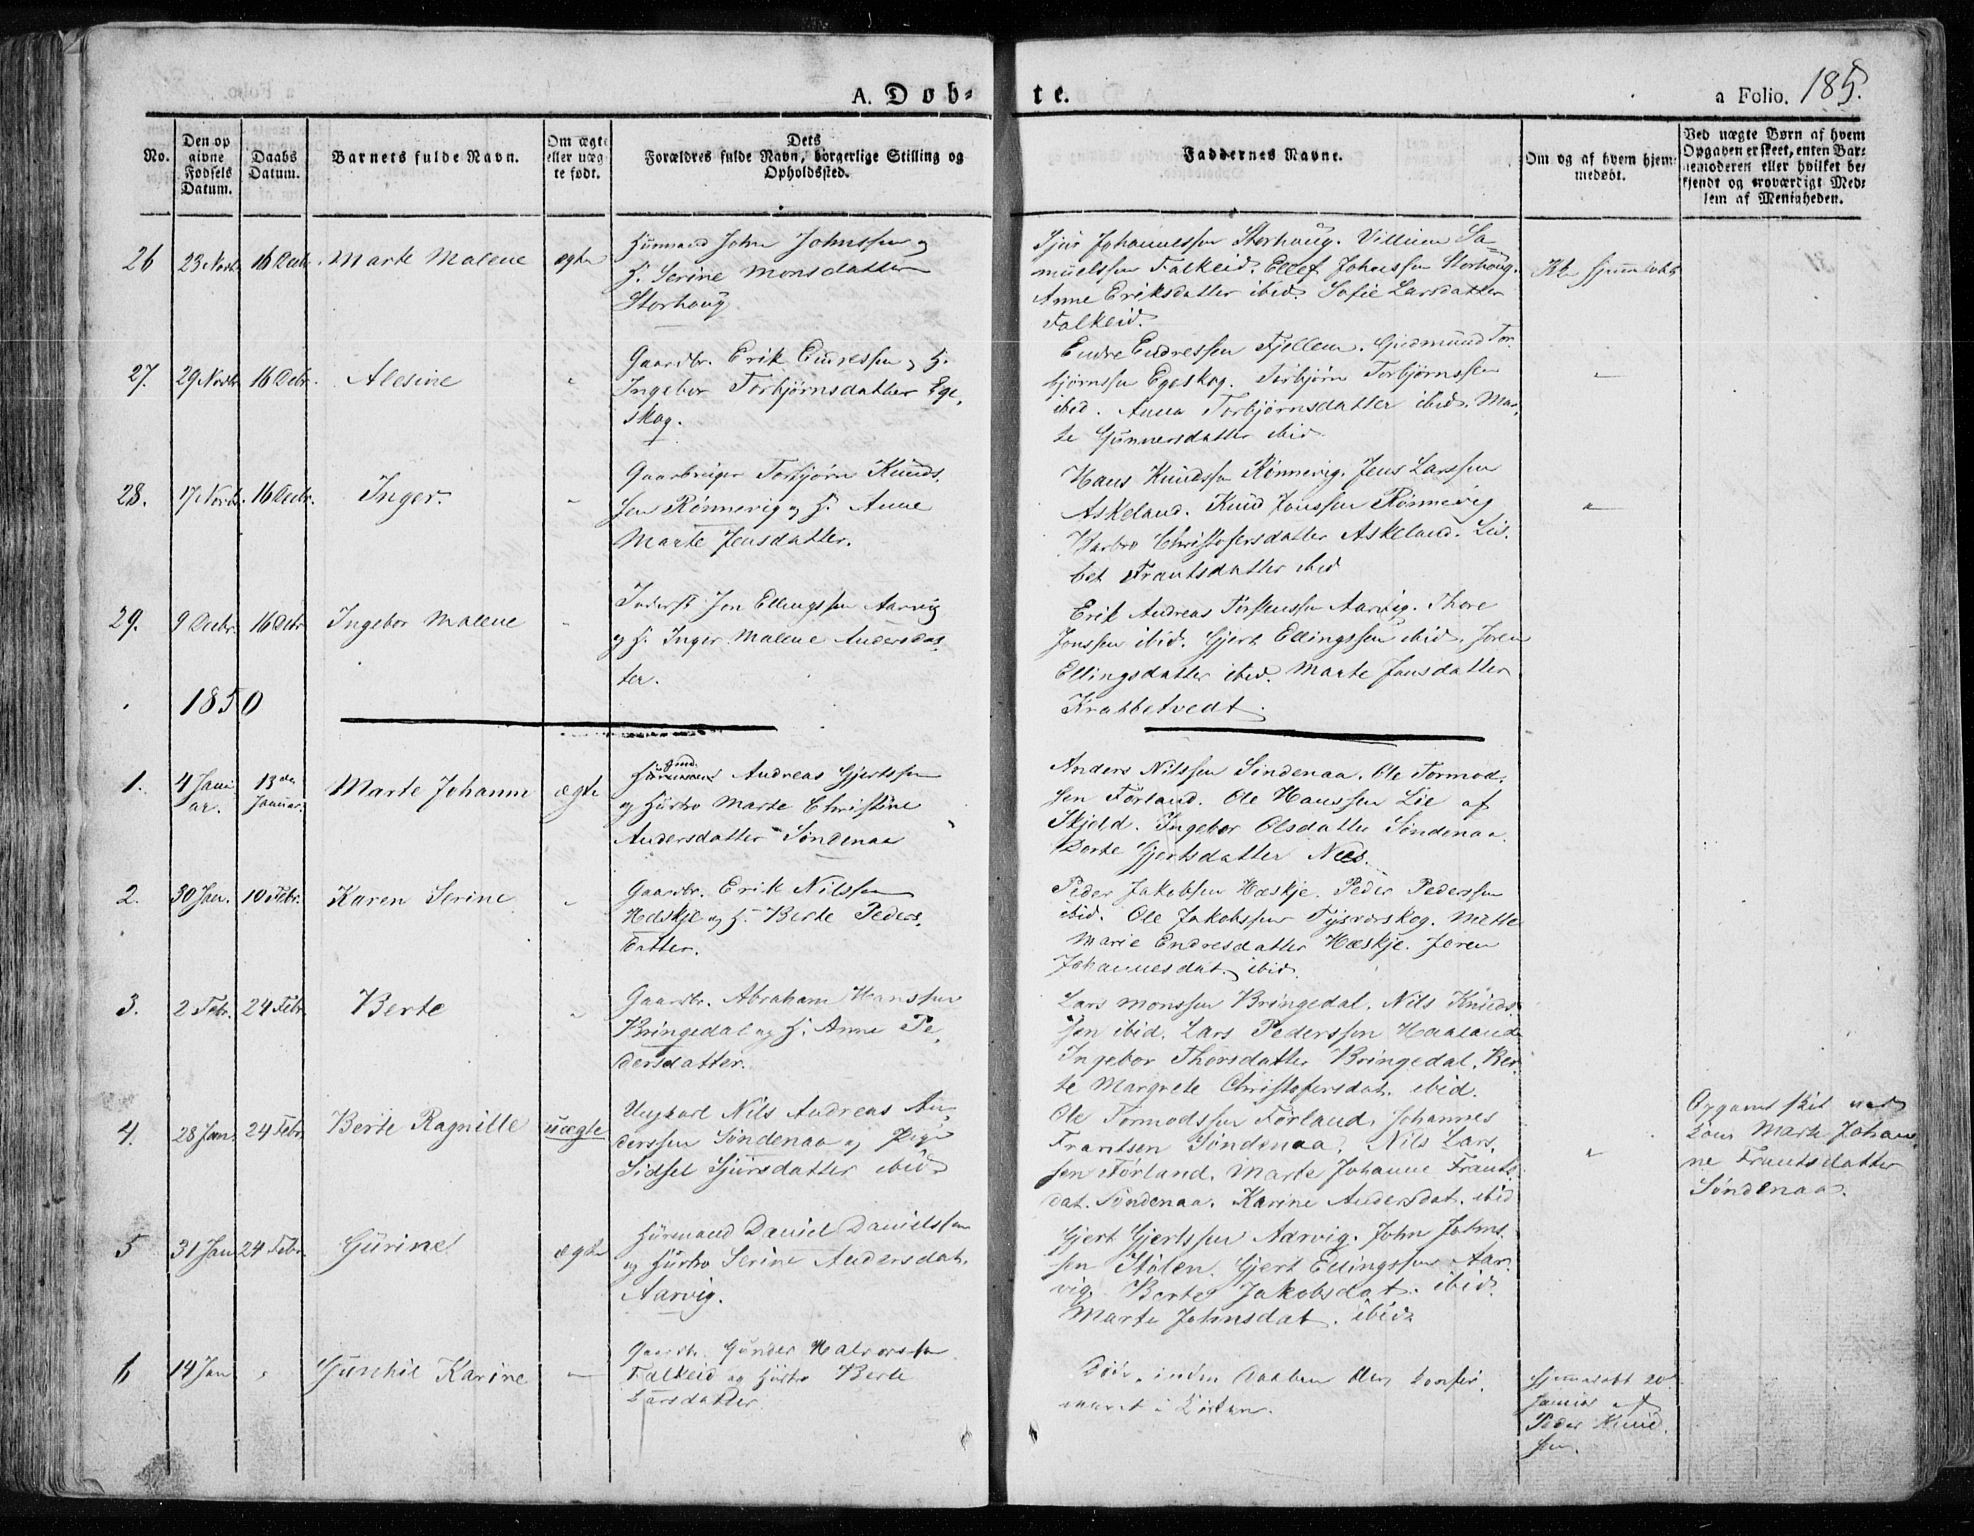 A. Døb-
te.
a Folio. 185.
No.
Den op
givne
Fødsels
Datum.
Daabs
Datum.
Barnets fulde Navn.
Om ægte
eller uæg-
te født.
Dets
Forældres fulde Navn, borgerlige Stilling og
Opholdssted.
Faddernes Navne.
Om og af hvem hjem-
medøbt.
Ved uægte Børn af hvem
Opgaven er skeet, enten Bar-
nemoderen eller hvilket be-
kjendt og troværdigt Med-
lem af Menigheden.
26
23 Novbr
16 Decbr.
Marte Malene
ægte
Huusmand John Johnssen og
H. Serine Monsdatter
Storhoug
Johannessen Storhoug. Villium Sa-
muelssen Falkeid. Ellef Johnssen Storhoug.
Anne Eriksdatter ibid. Sofie Larsdatter
Falkeid.
27.
29 Novbr
16 Decbr.
Alesine
"
Gaardbr. Erik Endressen og H.
Ingebor Torbjørnsdatter Ege-
skog.
Endre Endressen Fjellem. Gudmund Tor-
bjørnssen Egeskog. Torbjørn Torbjørnssen
ibid. Anna Torbjørnsdatter ibid. Mar-
te Gunnersdatter ibid
"
28.
17 Novbr.
16 Decbr.
Inger.
"
Gaardbruger Torbjørn Knuds-
sen Rønnevig og H. Anne
Marte Jensdatter.
Hans Knudssen Rønnevig. Jens Larssen
Askeland. Knud Jonssen Rønnevig
Barbro Christofersdatter Askeland. Lis-
bet Frantsdatter ibid
"
29.
9 Decbr.
16 Decbr
Ingebor Malene
"
Inderst Jon Ellingssen Aarvig
og H. Inger Malene Andersdat-
ter.
Erik Andreas Torstenssen Aarvig. Thore
Jonssen ibid. Gjert Ellingssen ibid. Joren
Ellingsdatter ibid. Marte Jansdatter
Krabbetvedt.
1850
1.
4 Janu
ar.
13de
Januar.
Marte Johanne
ægte
Andreas Gjertssen
og Hustro Marte Christine
Andersdatter Søndenaa
Anders Nilssen Søndenaa. Ole Tormod-
sen Førland. Ole Hanssen Lie af
Skjold. Ingebor Olsdatter Søndenaa.
Dorte Gjertsdatter Nees.
2.
30 Jan.
10 Febr.
Karen Serine
"
Gaardbr. Erik Nilssen
Hæskje og H. Berte Peders-
datter.
Peder Jakobsen Hæskje. Peder Pederssen
ibid. Ole Jakobssen Tysværskog. Mette
Marie Endresdatter Hæskje. Joren
Johannesdat. ibid.
3.
2 Febr.
24 Febr.
Berte
"
Gaardbr. Abraham Hanssen
Bringedal og H. Anne Pe-
dersdatter.
Lars Monssen Bringedal. Nils Knuds-
sen ibid. Lars Pederssen Haaland
Ingebor Thorsdatter Bringedal. Ber-
te Margrete Christofersdat. ibid.
4.
28 Jan
24 Febr.
Berte Ragnille
uægte
Ungkarl Nils Andreas An-
derssen Søndenaa og Pige
Sidsel Sjursdatter ibid
Ole Tormodssen Førland. Johannes
Frantsen Søndenaa. Nils Lars-
sen Førland. Marte Johanne Frants-
dat. Søndenaa. Karine Andersdat. ibid
"
Opgavet skeet ved
Marte Johan-
ne Frantsdatter
Søndenaa.
5
31 Jan
24 Febr.
Gurine
ægte
Huusmand Daniel Danielssen
og Hustro Serine Andersdat.
Aarvig.
Gjert Gjertssen Aarvig. John Johns-
sen Stølen. Gjert Ellingssen Aar-
vig. Berte Jakobsdat. ibid.
Marte Johnsdat. ibid
6
14 Jan
"
Gunhil Karine
"
Gaardbr. Gunder Halvorssen
Falkeid og Hustro Berte
Larsdatter.
Døde, inden Daaben blev
i Kirken.
hjemmedøbt 20
Januar af
Peder Knud-
sen.